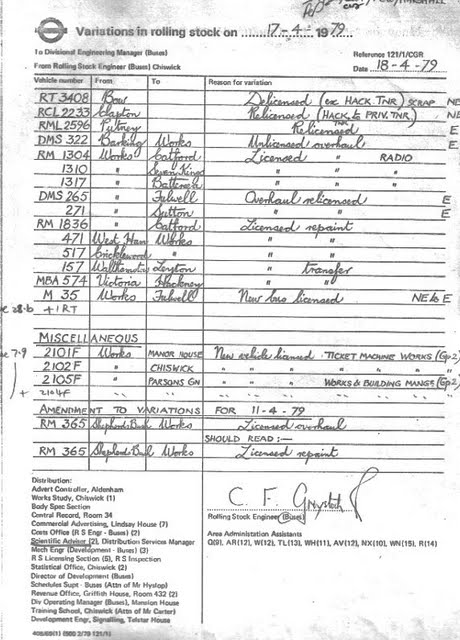 Variations in rolling stock on 17-4-1979
To Divisional Engineering Manager (Buses) Reference 121/1/CGR
From Rolling Stock Engineer (Buses) Chiswick Date 18-4-79
Vehicle number From To Reason for variation
RT 3408 Bow Delicensed (ex HACK. TNR) SCRAP NE
RCL 2233 Clapton Relicensed (HACK to PRIV. TNR) NE
RML 2596 Putney Relicensed TNR
DMS 322 Barking Works Unlicensed overhaul
RM 1304 Works Catford Licensed " RADIO
1310 " Seven Kings " "
1317 " Battersea " "
DMS 265 " Fulwell Overhaul relicensed E
271 " Sutton " " E
RM 1836 " Catford Licensed repaint
471 West Ham Works " "
517 Cricklewood " " "
157 Walthamstow Leyton " transfer
MBA 574 Victoria Hackney " "
M 35 Works Fulwell New bus licensed NE to E
28.b + 1 RT
MISCELLANEOUS
7.9 2101F Works MANOR HOUSE New vehicle licensed TICKET MACHINE WORKS (Gp2)
2102F " CHISWICK " " " " " "
2105F " PARSONS GN " " " WORKS & BUILDING MANGR (Gp2)
+ 2104F " " " " "
AMENDMENT TO VARIATIONS FOR 11-4-79
RM 365 Shepherds Bush Works Licensed overhaul
SHOULD READ :—
RM 365 Shepherds Bush Works Licensed repaint
Distribution:
Advert Controller, Aldenham
Works Study, Chiswick (1)
Body Spec Section
Central Record, Room 34
Commercial Advertising, Lindsay House (7)
Costs Office (R S Engr - Buses) (2)
Scientific Adviser (2), Distribution Services Manager
Mech Engr (Development - Buses) (3)
R S Licensing Section (5), R S Inspection
Statistical Office, Chiswick (2)
Director of Development (Buses)
Schedules Supt - Buses (Attn of Mr Hyslop)
Revenue Office, Griffith House, Room 432 (2)
Div Operating Manager (Buses), Mansion House
Training School, Chiswick (Attn of Mr Carter)
Development Engr, Signalling, Telstar House
C. F. Greystock
Rolling Stock Engineer (Buses)
Area Administation Assistants
Q(9), AR(12), W(12), TL(13), WH(11), AV(12), NX(10), WN(15), R(14)